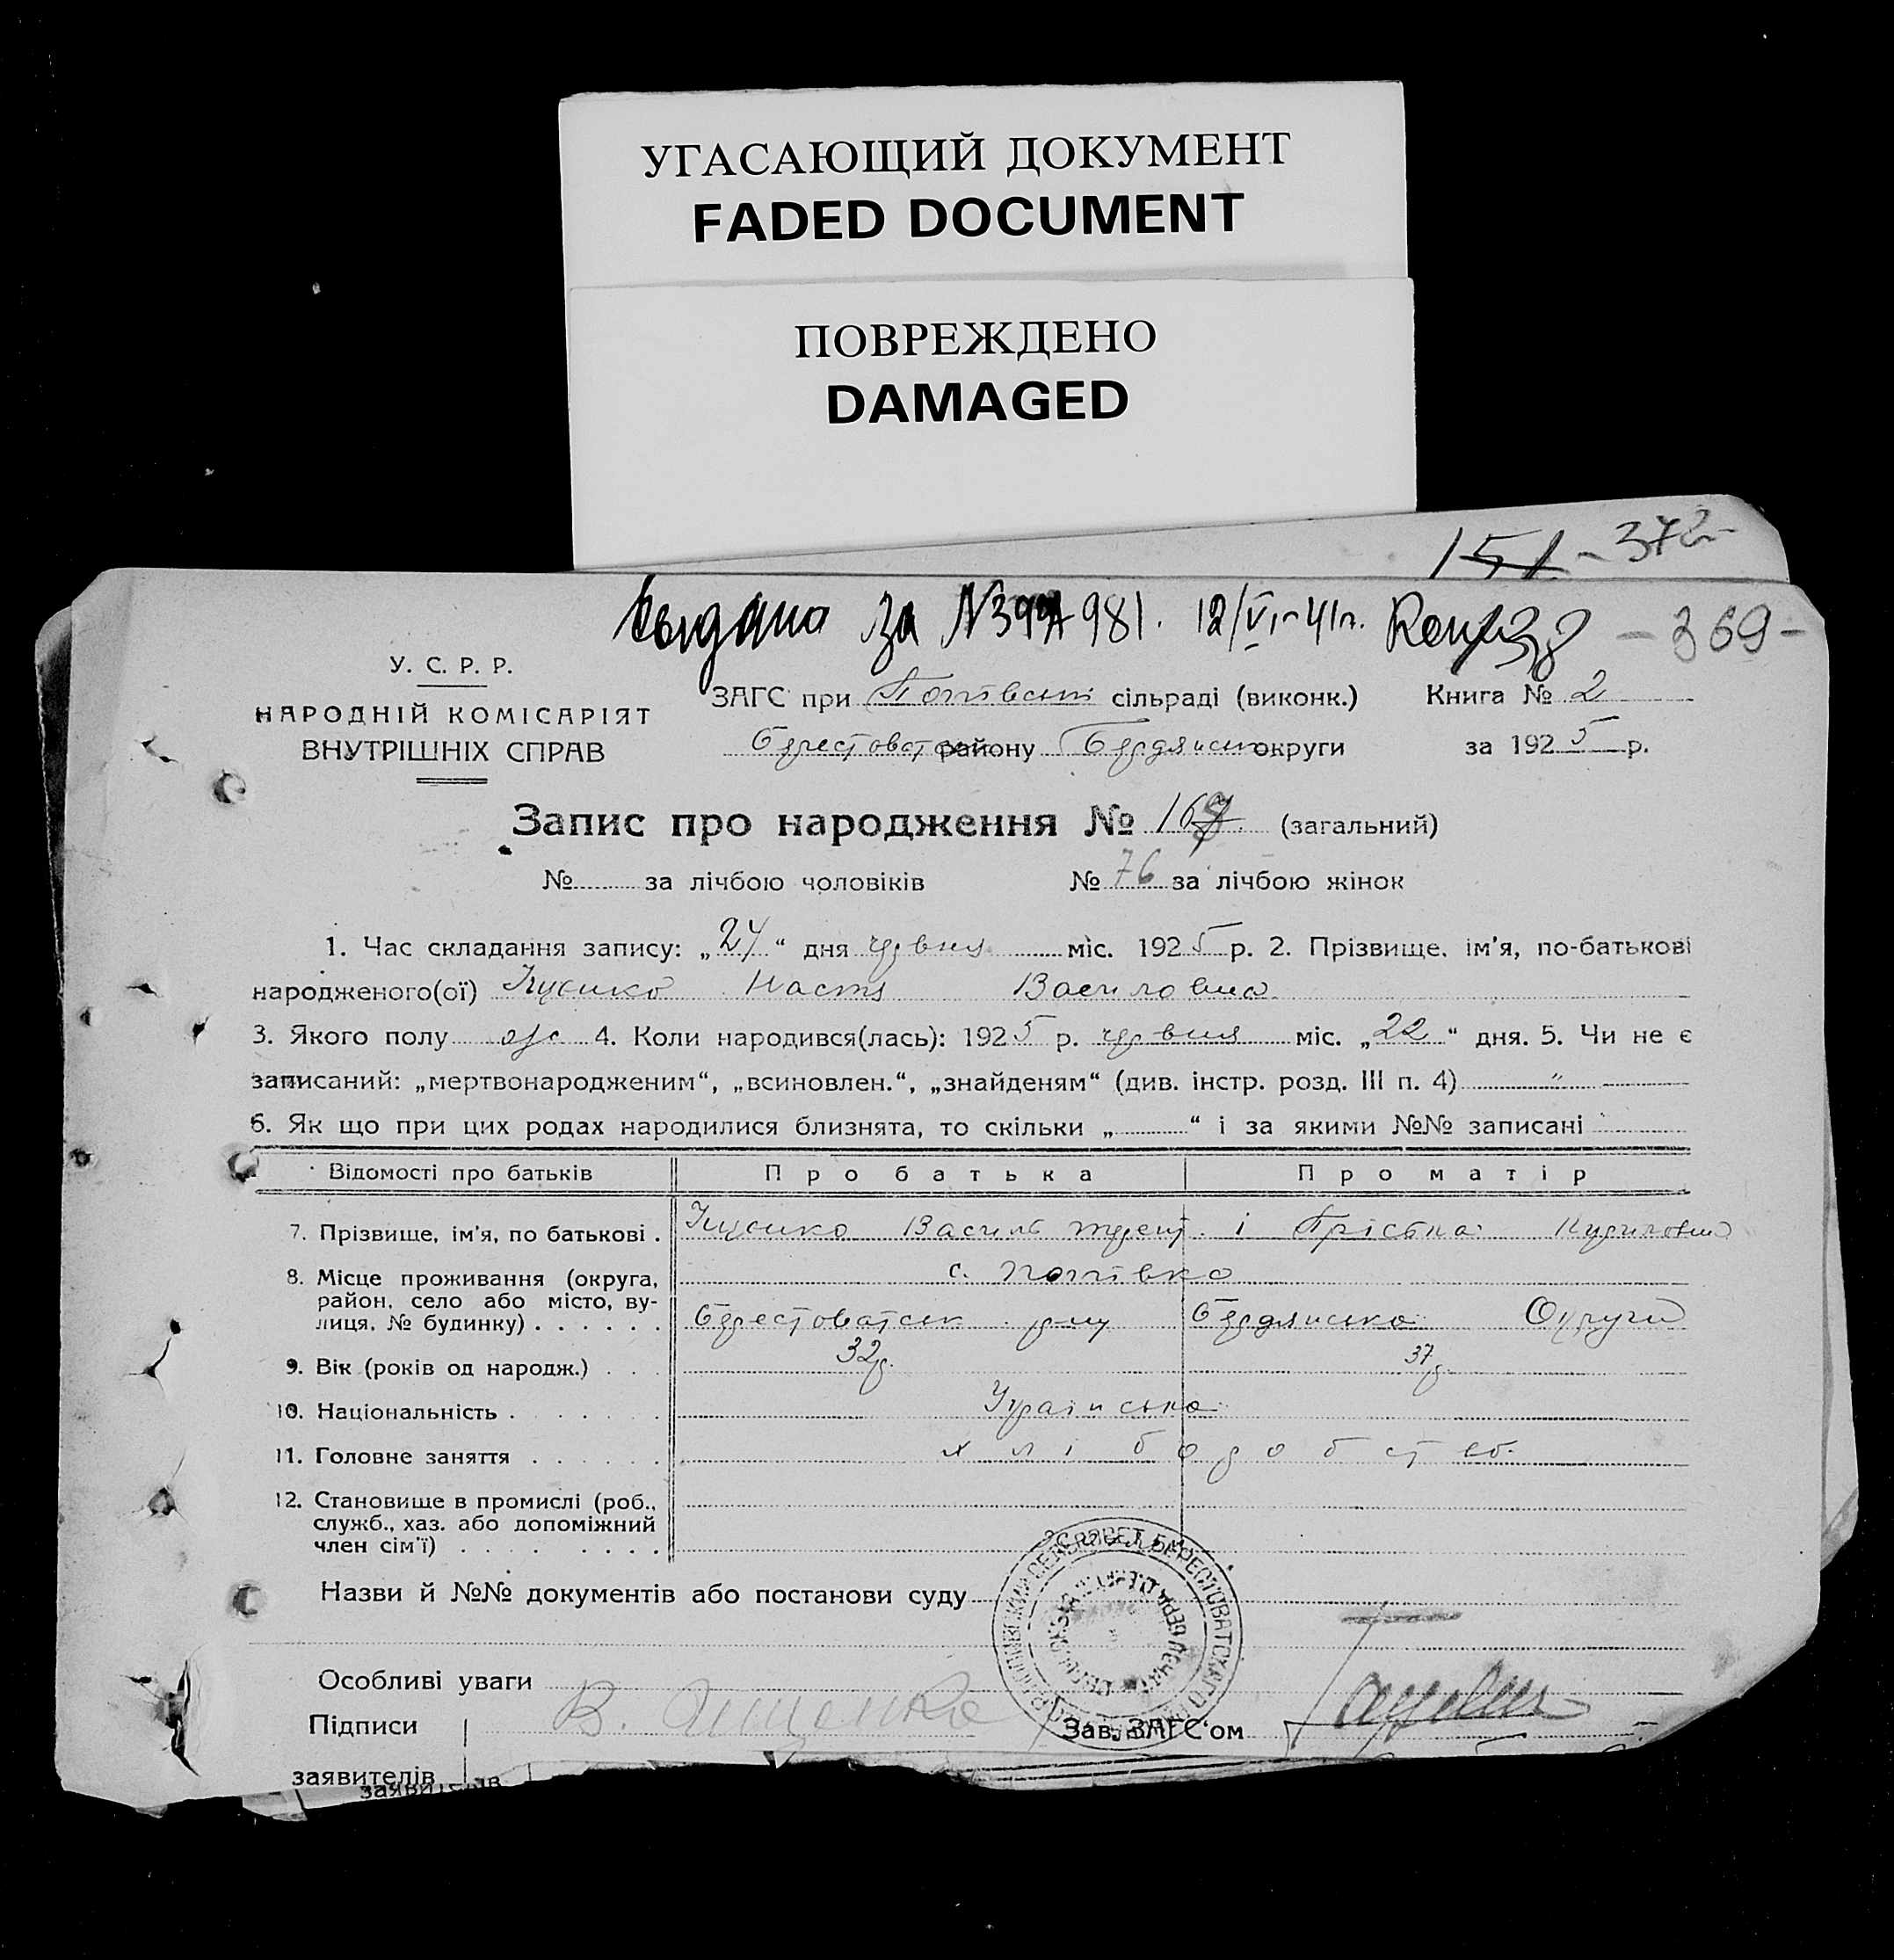 УГАСАЮЩИЙ ДОКУМЕНТ
FADED DOCUMENT
ПОВРЕЖДЕНО
DAMAGED
151 - 372 -
Выдано за N 981. 12/VI-41г. - 369 -
У. С. Р. Р.
НАРОДНІЙ КОМІСАРІЯТ
ВНУТРІШНІХ СПРАВ
ЗАГС при сільраді (виконк.) Книга № 2
Берестоватськ району Бердянськ округи за 1925 р.
Запис про народження № 168 (загальний)
№ за лічбою чоловіків № 76 за лічбою жінок
1. Час складання запису: „24“ дня червня міс. 1925 р. 2. Прізвище, ім'я, по-батькові
народженого(ої) Настя Василовна
3. Якого полу ж 4. Коли народився(лась): 1925 р. червня міс. „22“ дня. 5. Чи не є
записаний: „мертвонародженим“, „всиновлен.“, „знайденям“ (див. інстр. розд. III п. 4) "
6. Як що при цих родах народилися близнята, то скільки „ “ і за якими №№ записані
Відомості про батьків Про батька Про матір
7. Прізвище, ім'я, по батькові . Василь і
8. Місце проживання (округа,
район, село або місто, ву-
лиця, № будинку) . . . . . .
с. Попівка
Берестоватськ р-ну Бердянсько Округи
9. Вік (років од народж.) . . . 32 р. 37 р.
10. Національність . . . . . . . Українська
11. Головне заняття . . . . . . хліборобств
12. Становище в промислі (роб.,
служб., хаз. або допоміжний
член сім'ї) . . . . . . . .
Назви й №№ документів або постанови суду
Особливі уваги
Підписи
В.
Зав. ЗАГС'ом
заявителів
заявителів